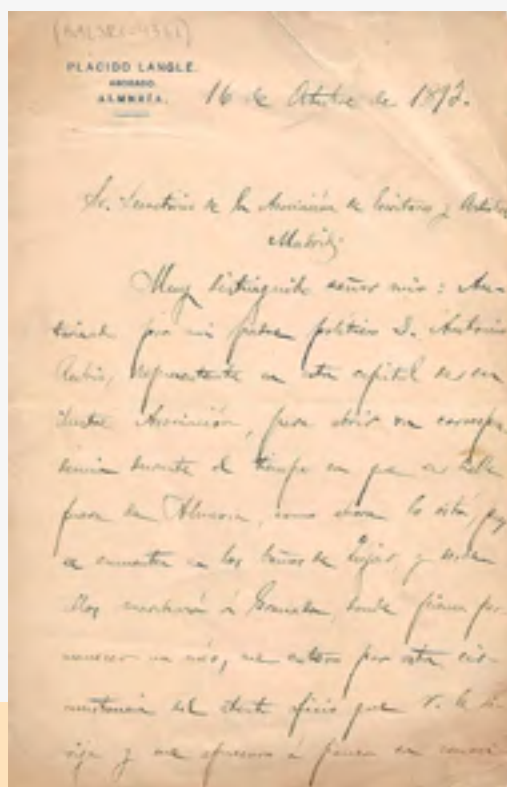 PLACIDO LANGLE.
ABOGADO
ALMERÍA.
16 de Octubre de 1892.
Sr. Secretario de la Asociación de Escritores y Artistas
Madrid
Muy distinguido señor mio: Au-
torizado por mi padre político D. Antonio
Rubio, representante en esta capital de esa
ilustre Asociación, para abrir su correspon
dencia durante el tiempo en que se halle
fuera de Almería, como ahora lo está, pues
se encuentra en los baños de Lújar, y desde
ellos marchará á Granada, donde piensa per
manecer un mes, me entero por esta cir-
cunstancia del atento oficio que V. le di-
rije y me apresuro á poner en conoci